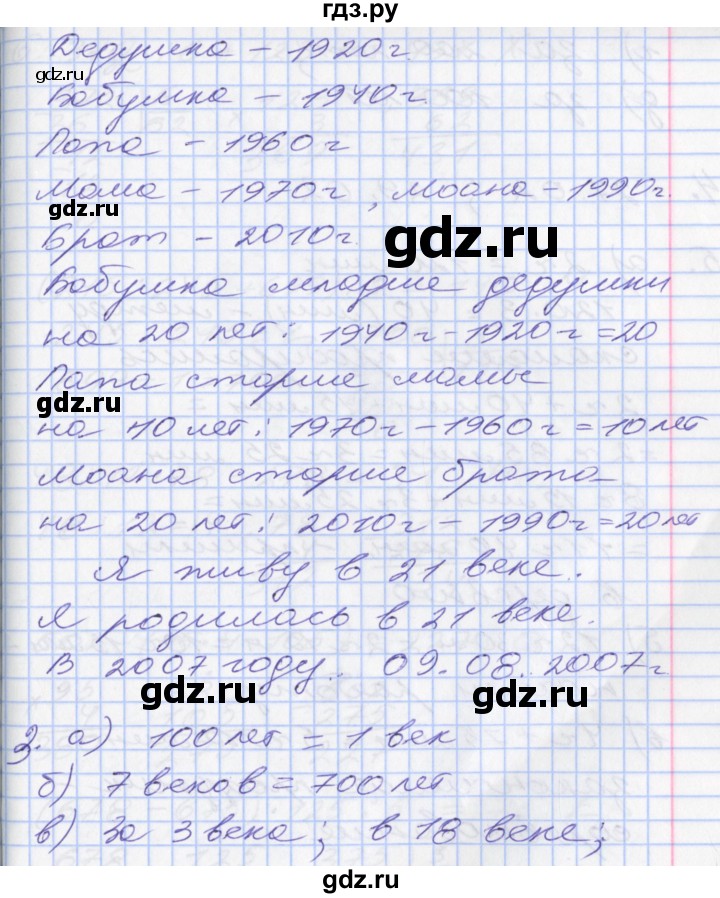 гдз.ру
Дедушка – 1920 г.
Бабушка – 1940 г.
Папа – 1960 г
Мама – 1970 г, Моана – 1990 г.
gdz.ru
Брат – 2010 г.
gdz.ru
Бабушка младше дедушки
на 20 лет: 1940 г – 1920 г = 20
Папа старше мамы
gdz.ru
на 10 лет: 1970 г – 1960 г = 10 лет
Моана старше брата
на 20 лет: 2010 г – 1990 г = 20 лет
Я живу в 21 веке.
Я родилась в 21 веке.
В 2007 году. 09.08.2007 г
gdz.ru gdz.ru
3. а) 100 лет = 1 век
б) 7 веков = 700 лет
в) За 3 века; в 18 веке;
gdz.ru